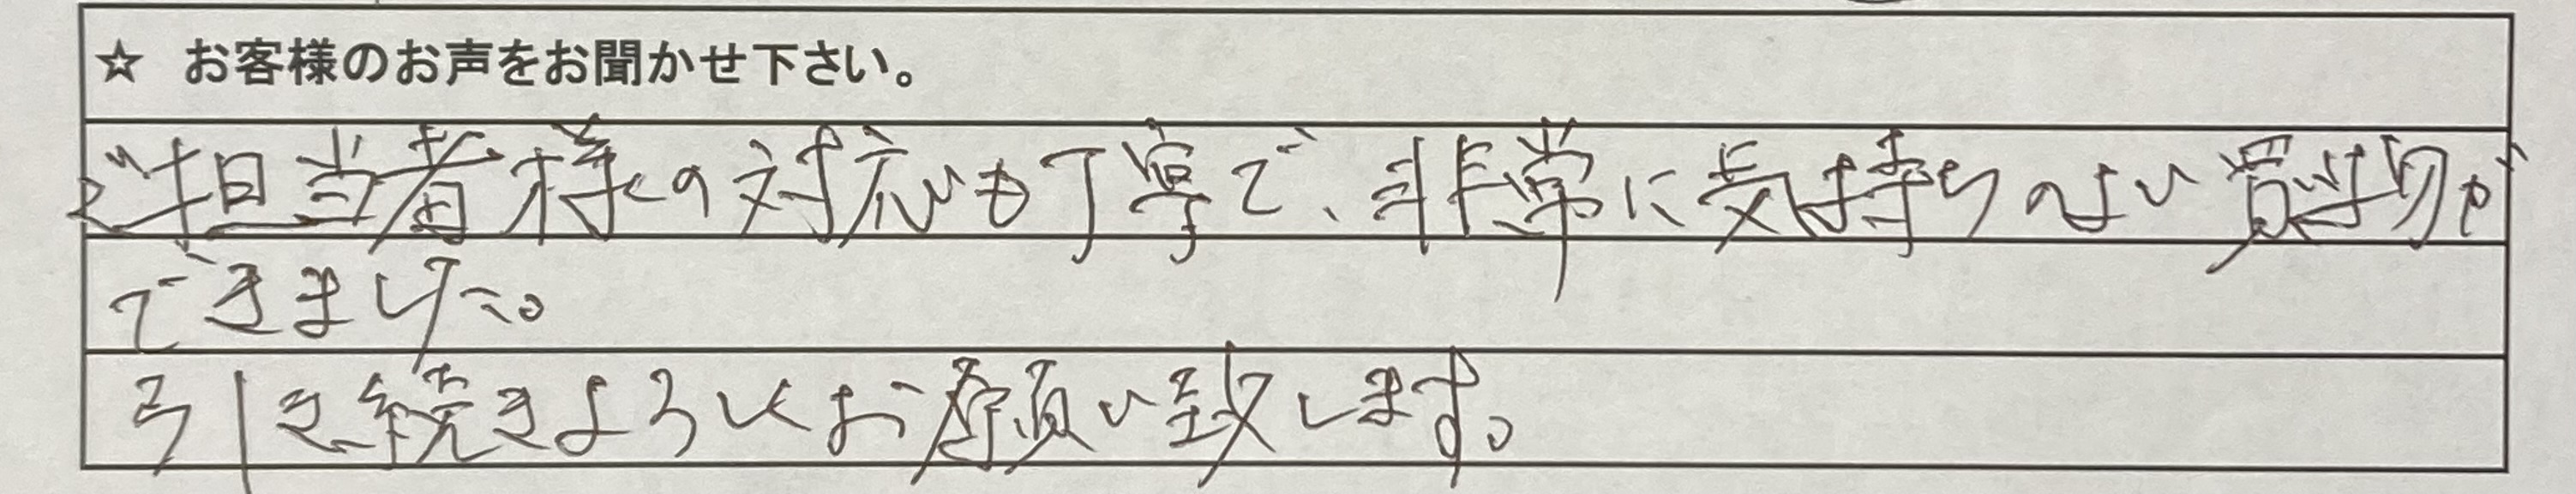 ☆ お客様のお声をお聞かせ下さい。
ご担当者様の対応も丁寧で、非常に気持ちのよい買物が
できました。
引き続きよろしくお願い致します。